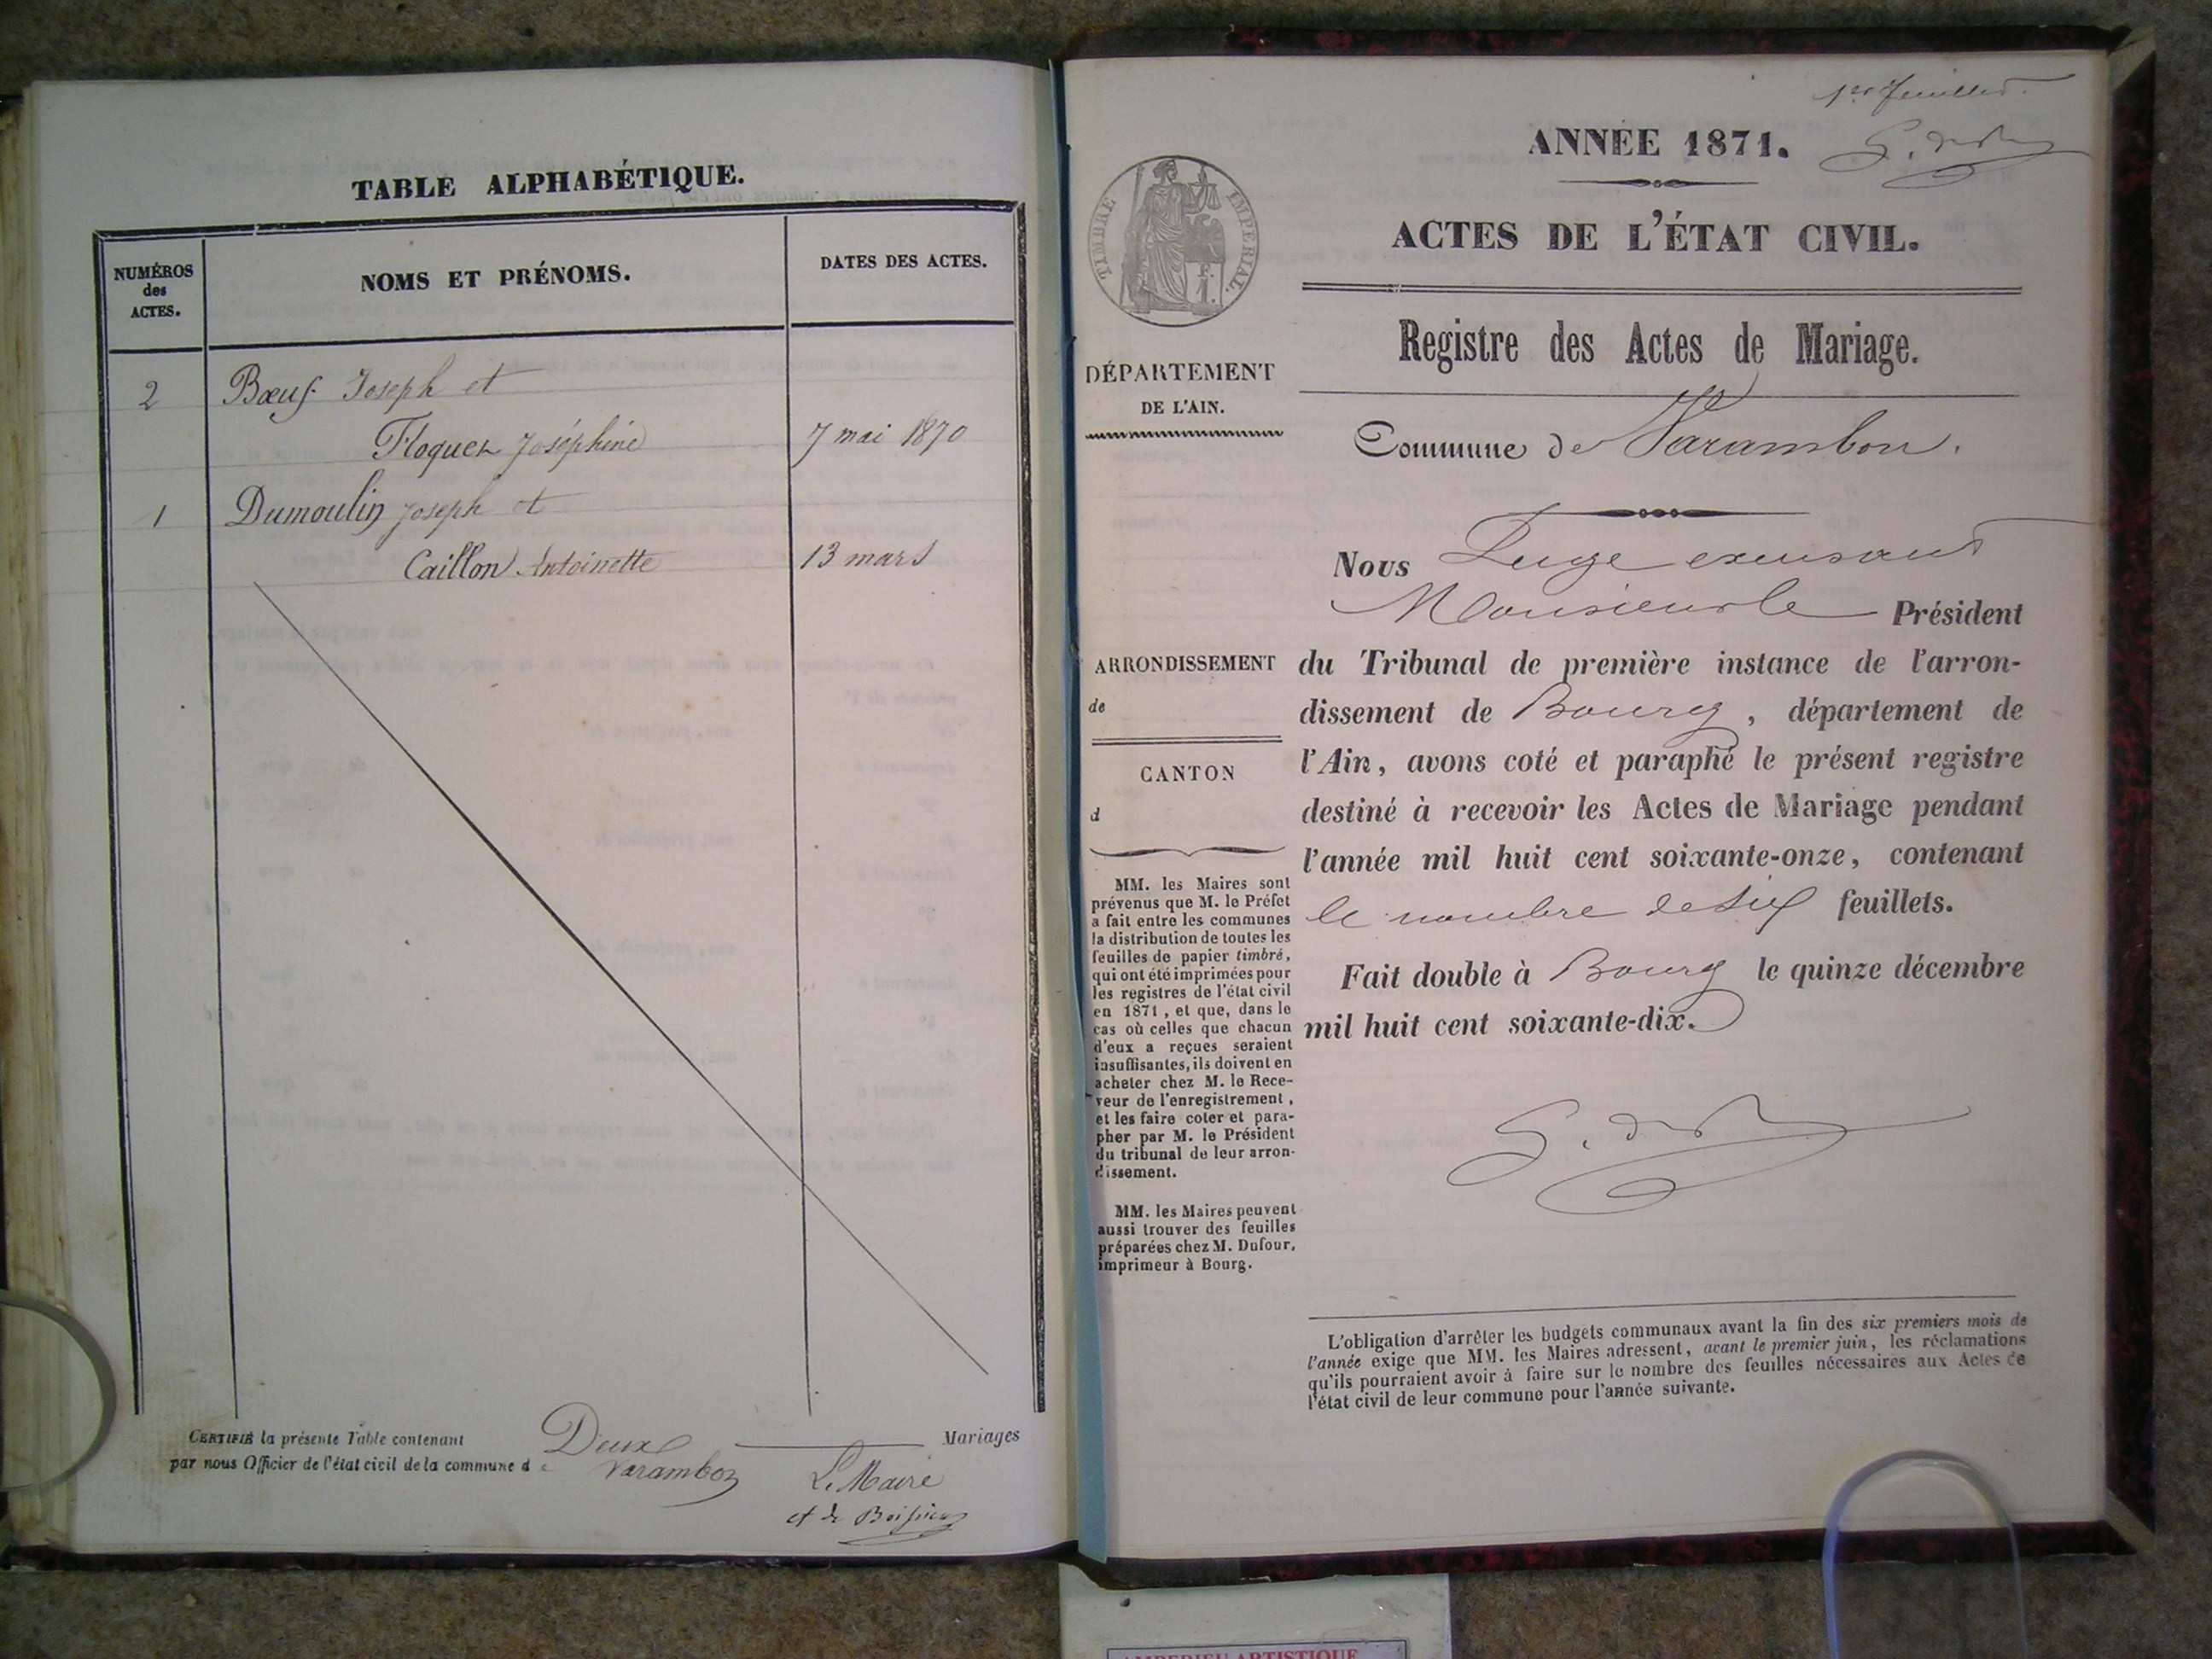 TABLE ALPHABÉTIQUE.
NUMÉROS
des
ACTES.
NOMS ET PRÉNOMS.
DATES DES ACTES.
2 Bœuf Joseph et
Floquet Joséphine 7 mai 1870
1 Dumoulin Joseph et
Caillon Antoinette 13 mars
CERTIFIÉ la présente Table contenant Deux Mariages
par nous Officier de l'état civil de la commune de Varambon
Le Maire
1er feuillet.
ANNÉE 1871.
ACTES DE L'ÉTAT CIVIL.
TIMBRE IMPÉRIAL.
1 f.
Registre des Actes de Mariage.
DÉPARTEMENT
DE L'AIN.
Commune de Varambon.
Nous Juge excusant
Monsieur le Président
du Tribunal de première instance de l'arron-
dissement de Bourg, département de
l'Ain, avons coté et paraphé le présent registre
destiné à recevoir les Actes de Mariage pendant
l'année mil huit cent soixante-onze, contenant
le nombre de six feuillets.
Fait double à Bourg le quinze décembre
mil huit cent soixante-dix.
ARRONDISSEMENT
de
CANTON
d
MM. les Maires sont
prévenus que M. le Préfet
a fait entre les communes
la distribution de toutes les
feuilles de papier timbré,
qui ont été imprimées pour
les registres de l'état civil
en 1871, et que, dans le
cas où celles que chacun
d'eux a reçues seraient
insuffisantes, ils doivent en
acheter chez M. le Rece-
veur de l'enregistrement,
et les faire coter et para-
pher par M. le Président
du tribunal de leur arron-
dissement.
MM. les Maires peuvent
aussi trouver des feuilles
préparées chez M. Dufour,
imprimeur à Bourg.
L'obligation d'arrêter les budgets communaux avant la fin des six premiers mois de
l'année exige que MM. les Maires adressent, avant le premier juin, les réclamations
qu'ils pourraient avoir à faire sur le nombre des feuilles nécessaires aux Actes de
l'état civil de leur commune pour l'année suivante.
AMBERIEU ARTISTIQUE